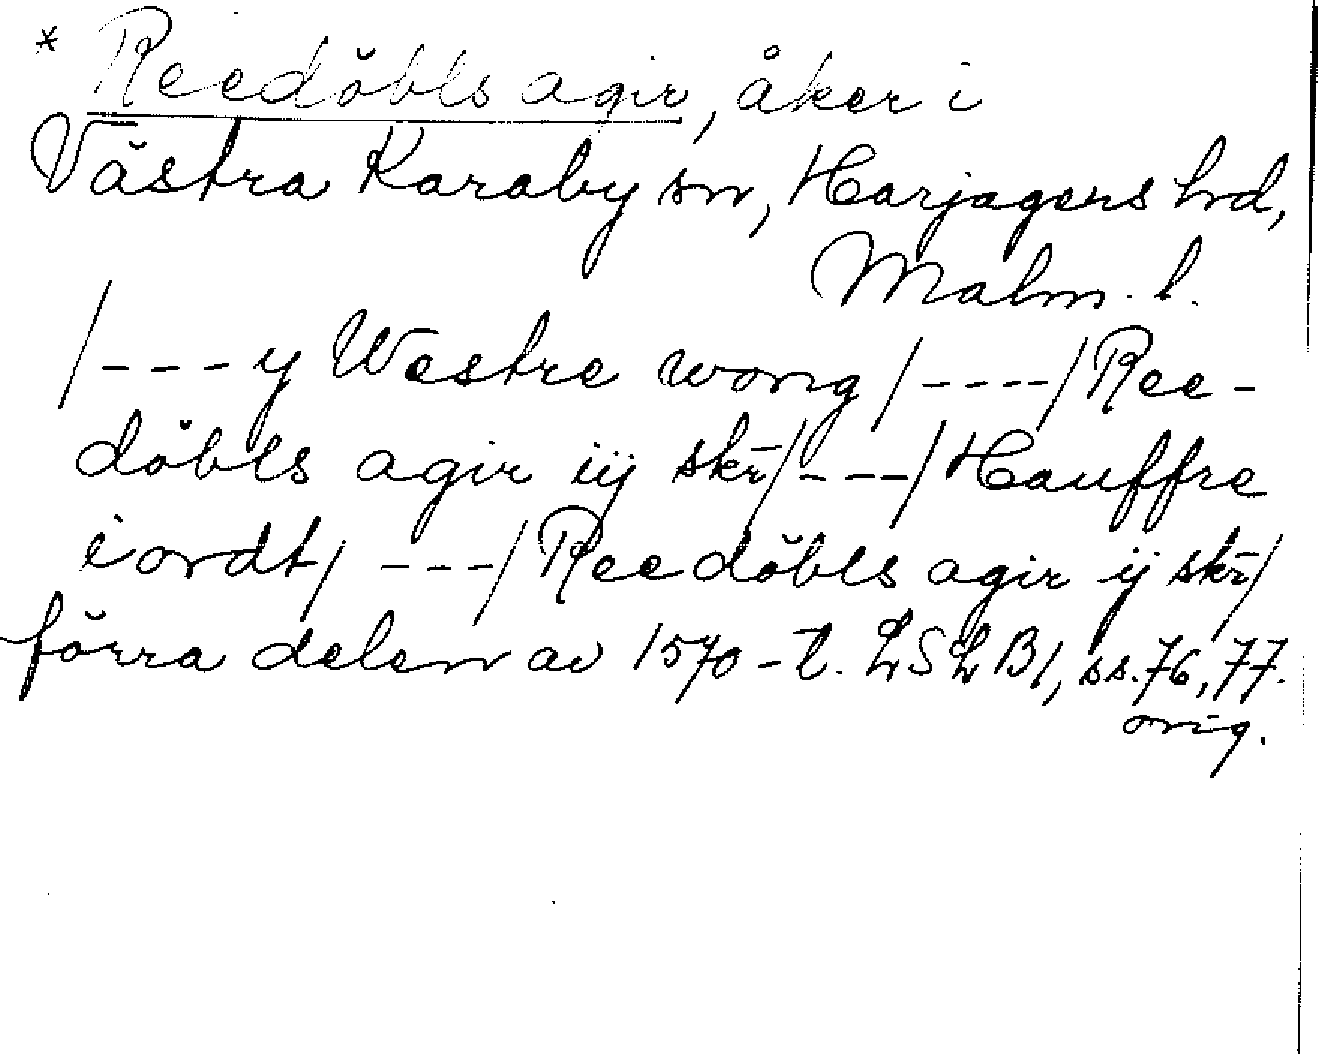 * Reedöbls agir, åker i
Västra Karaby sn, Harjagers hd,
Malm. l.
/---y Westre wong/----/Ree-
döbls agir iij skr̄/---/Hauffre
iordt/ ---/Reedöbls agir ij skr̄/
förra delen av 1570-t. LSLB1, ss.76,77.
orig.